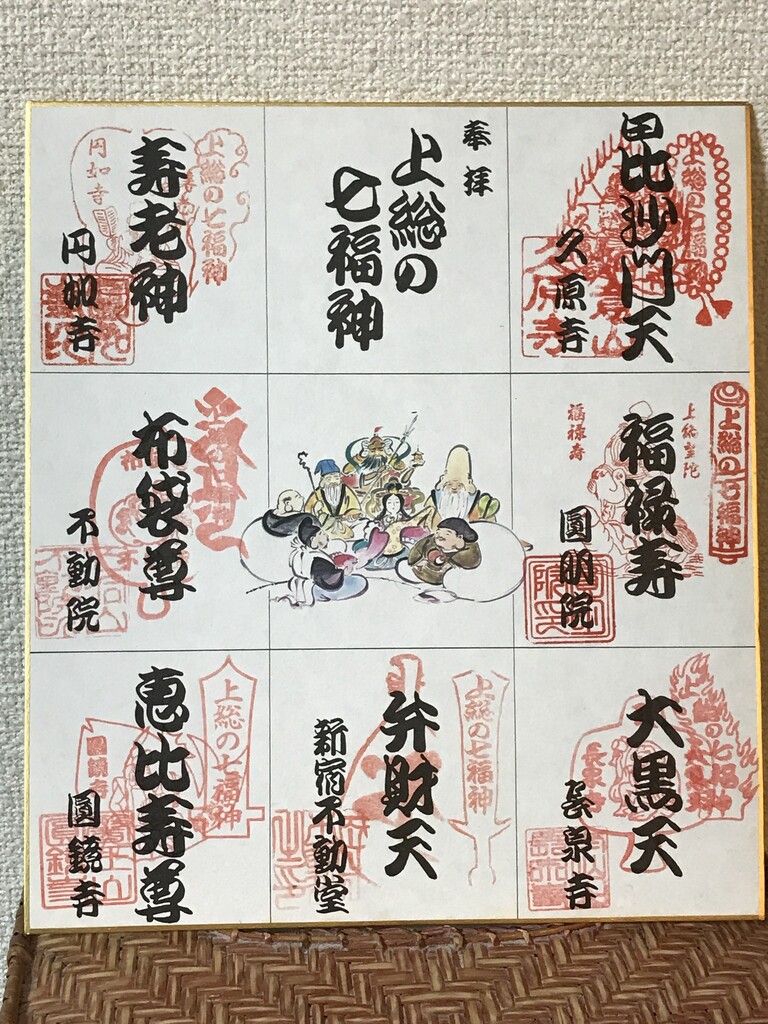 毘沙門天
久原寺
上総の七福神
奉拝
上総の
七福神
寿老神
円如寺
上総の七福神
円如寺
上総の七福神
福禄寿
圓明院
福禄寿
布袋尊
不動院
上総の七福神
大黒天
長泉寺
上総の七福神
弁財天
新宿不動堂
上総の七福神
恵比寿尊
圓鏡寺
圓鏡寺